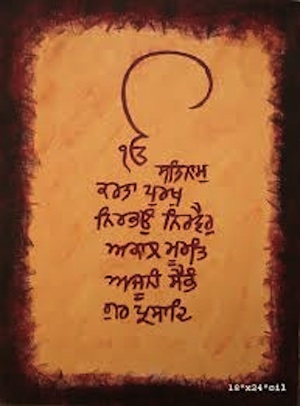 ੴ ਸਤਿਨਾਮੁ
ਕਰਤਾ ਪੁਰਖੁ
ਨਿਰਭਉ ਨਿਰਵੈਰੁ
ਅਕਾਲ ਮੂਰਤਿ
ਅਜੂਨੀ ਸੈਭੰ
ਗੁਰ ਪ੍ਰਸਾਦਿ
18"x24"oil